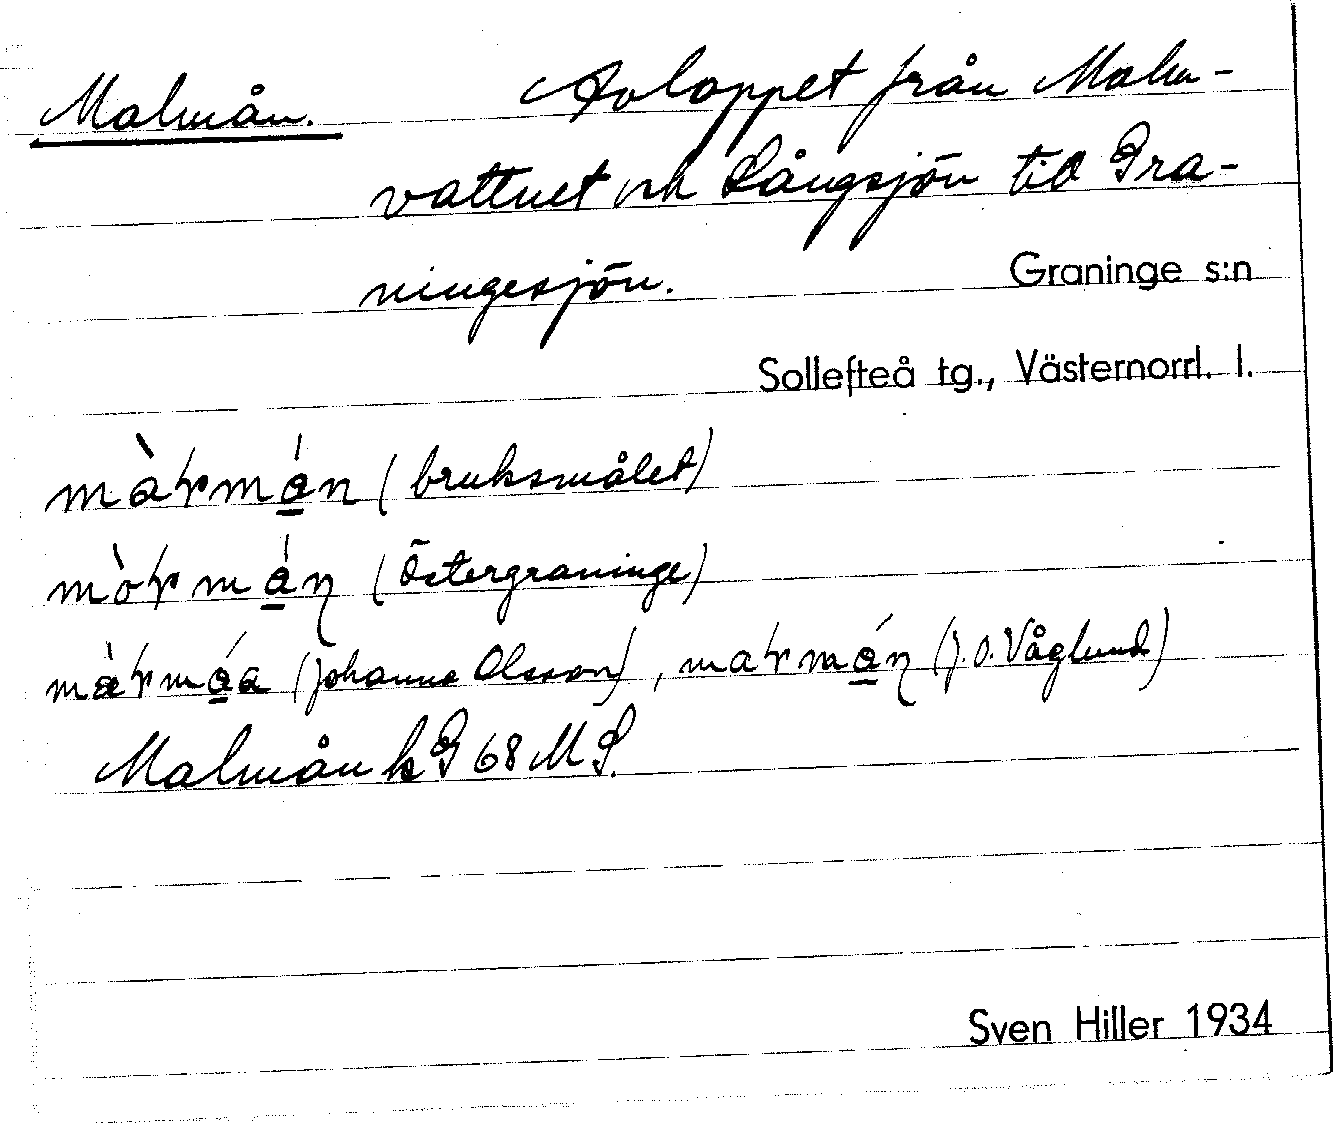 Malmån. Avloppet från Malm-
vattnet och Långsjön till Gra-
ningesjön.
Graninge s:n
Sollefteå tg., Västernorrl. l.
(bruksmålet)
(Östergraninge)
(Johanna Olsson), (J.O. Våglund)
Malmån k G 68 M S.
Sven Hiller 1934